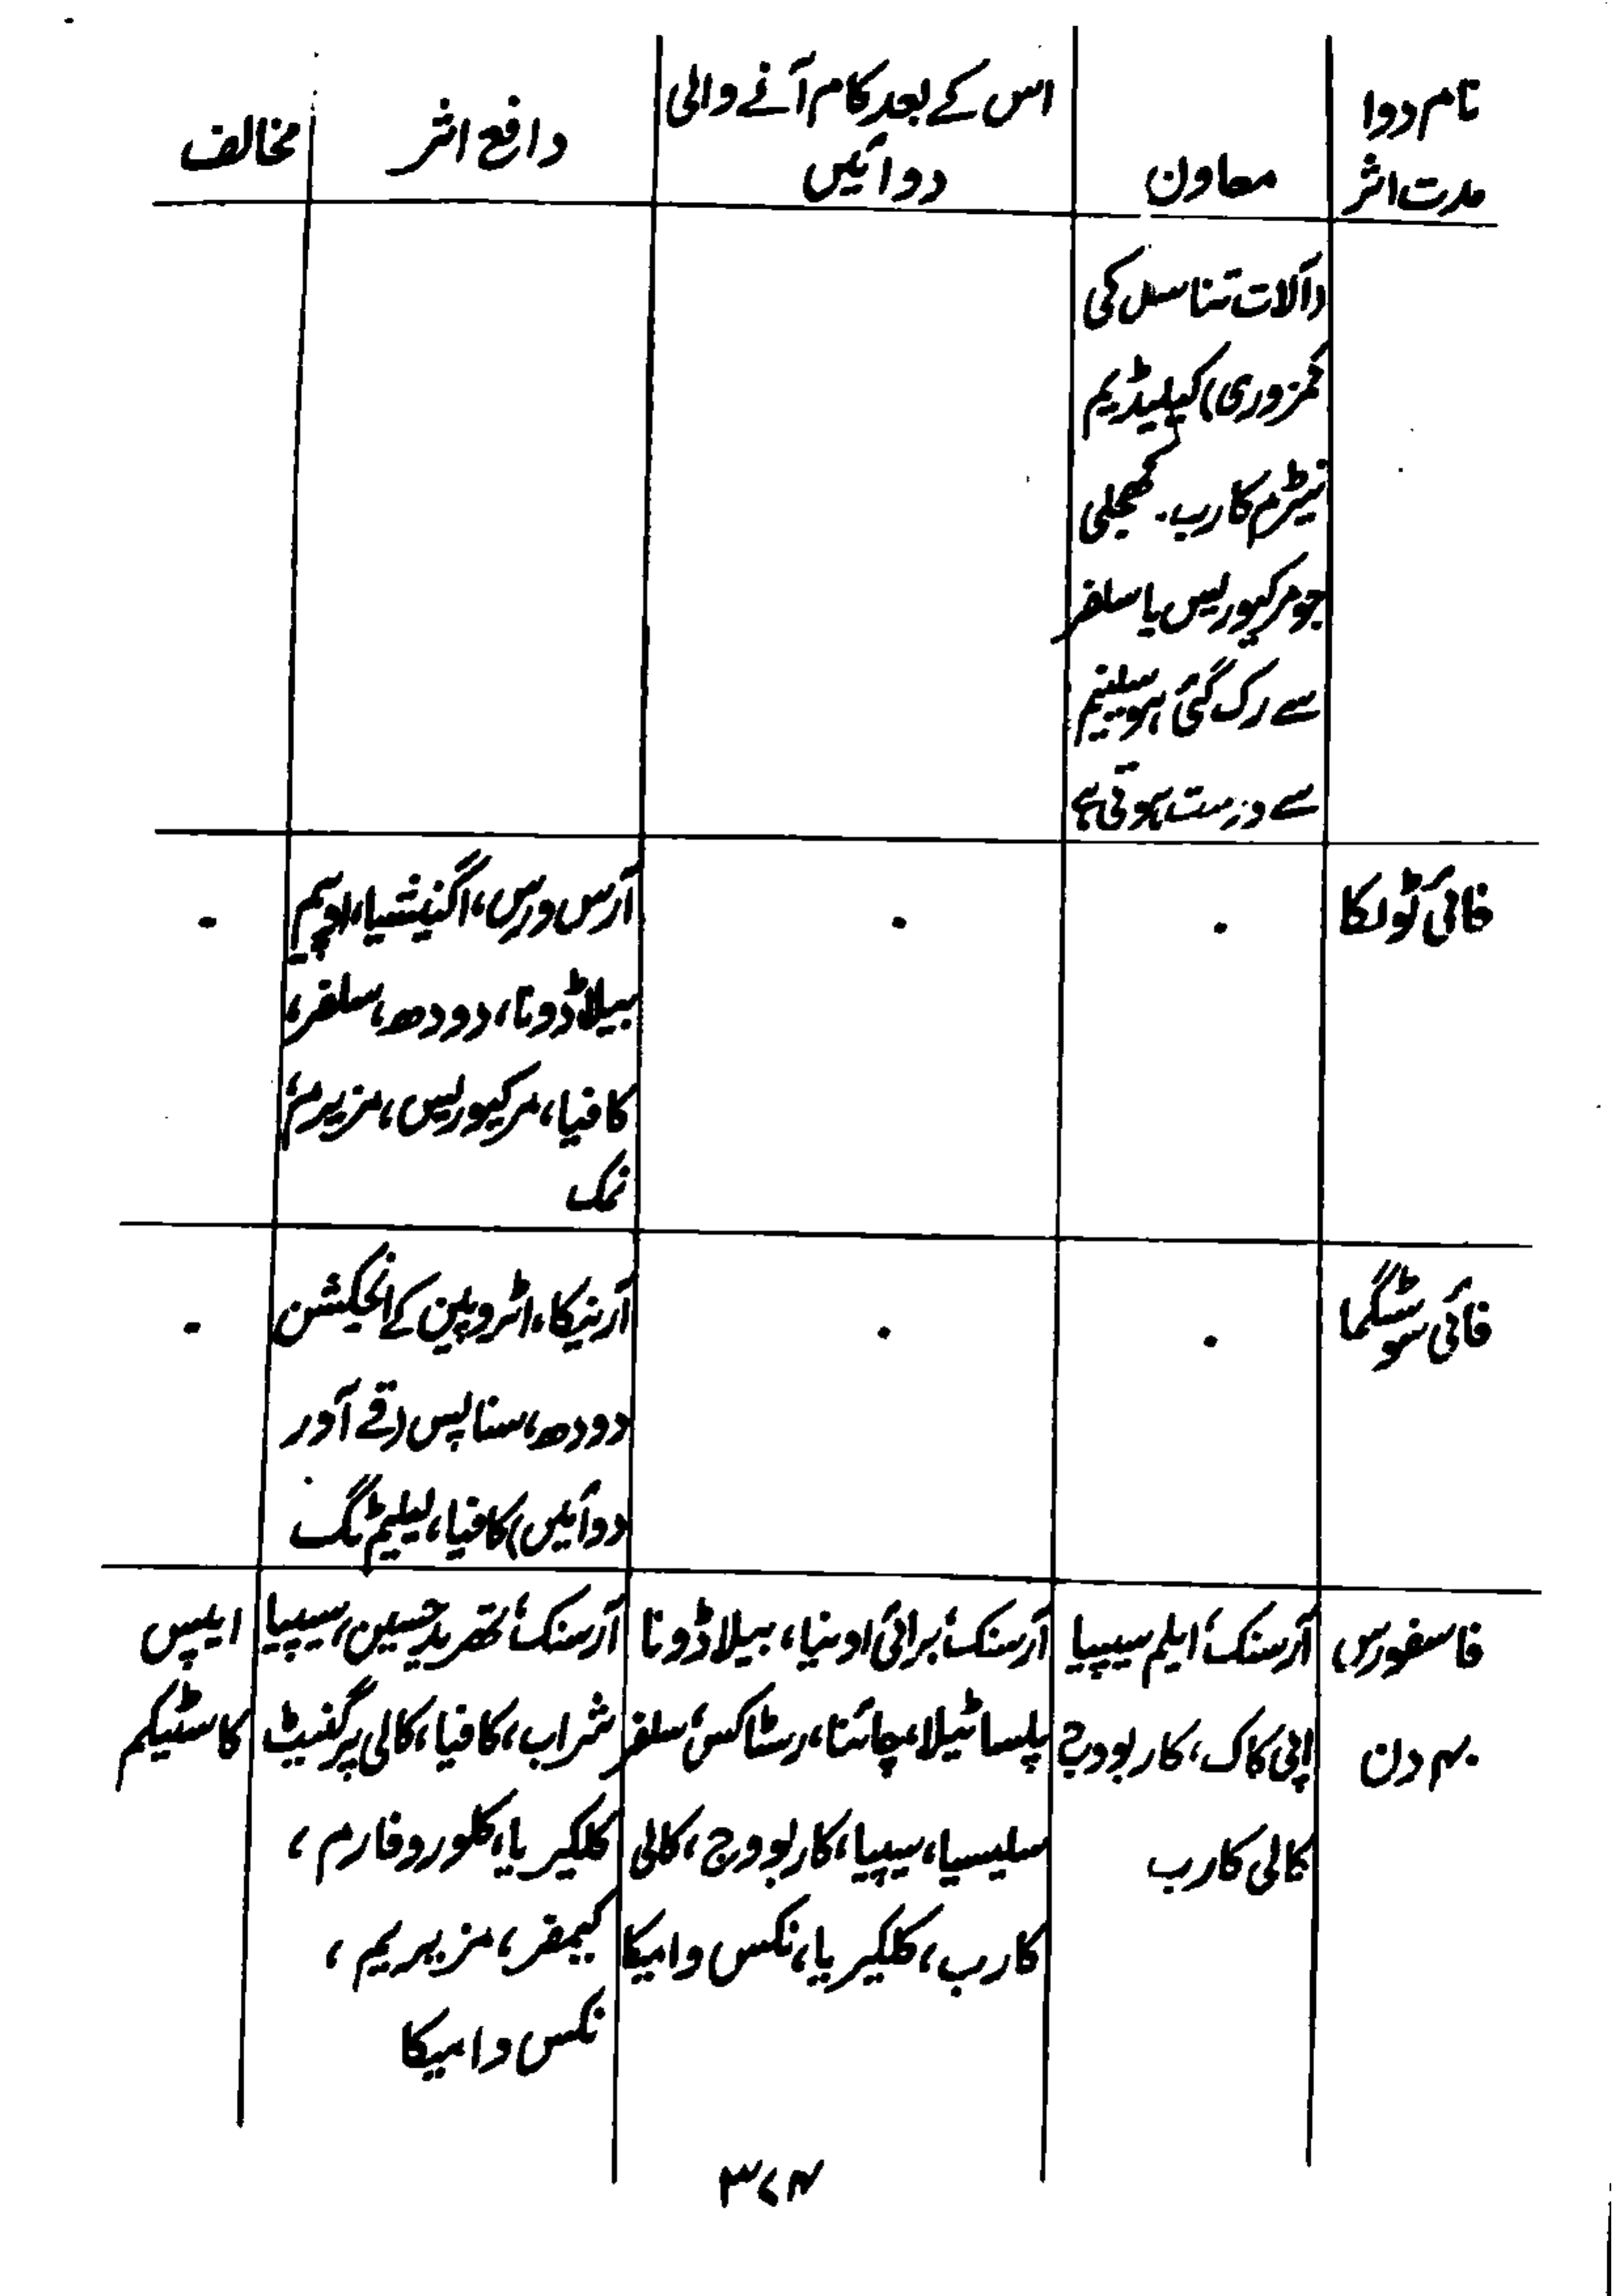 نام دوا
مدت اثر
معاون
اس کے بعد کام آنے والی
دوائیں
دافع اثر
مخالف
(آلات تناسل کی
کمزوری) کیلیڈیم
نیٹرم کارب۔ کھجلی
جو مرکیوریس یا سلفر
سے رک گئی ہو سلینیم
سے درست ہوتی ہے
فائی ٹولکا
۰
۰
آرس ورس، اگنیشیا، اوپیم
بیلاڈونا، دودھ، سلفر،
کافیا، مرکیوریس، مزیرم،
نمک
۰
فائی سوسٹگما
۰
۰
آرنیکا، اٹروپین کے انجکشن
دودھ، سناپس (قے آور
دوائیں) کافیا، لیلیم ٹگ
۰
فاسفورس
۴۰ دن
آرسنک، ایلم سیپیا
اپی کاک، کاربووج
کالی کارب
آرسنک، برائی اونیا، بیلاڈونا
پلساٹیلا، چائنا، رسٹاکس، سلفر
سلیسیا، سیپیا، کاربووج، کالی
کارب، کلکیریا، نکس وامیکا
آرسنک، سیپیا
شراب، کافیا، کالی پرگنیٹ
کلکیریا، کلوروفارم،
کیمفر، مزیریم،
نکس وامیکا
ایپس
کاسٹیکم
۳۷۴